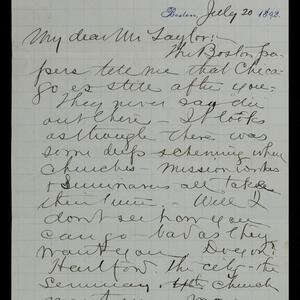 Boston, July 20 1892.
My dear Mr Taylor:
The Boston pa-
pers tell me that Chica-
go is still after you.
They never say die
out there - It looks
as though there was
some deep scheming when
Churches - Mission works
& Seminaries all take
their turn. - Well I
don't see how you
can go bad as they
want you Do you?
Hartford the city - the
Seminary. 4th Church